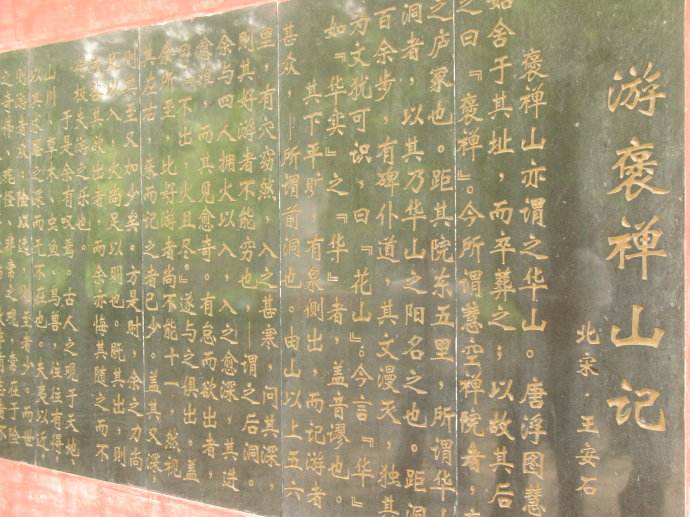 游褒禅山记
北宋·王安石
褒禅山亦谓之华山。唐浮图慧
如舍于其址,而卒葬之;以故其后
之曰『褒禅』。今所谓慧空禅院者,
之庐冢也。距其院东五里,所谓华
洞者,以其乃华山之阳名之也。距洞
百余步,有碑仆道,其文漫灭,独其
为文犹可识,曰『花山』。今言『华』
如『华实』之『华』者,盖音谬也。
其下平旷,有泉侧出,而记游者
甚众,——所谓前洞也。由山以上五六
里,有穴窈然,入之甚寒,问其深,
则其好游者不能穷也,——谓之后洞。
余与四人拥火以入,入之愈深,其进
愈难,而其见愈奇。有怠而欲出者,
曰不出,火且尽。』遂与之俱出。盖
余所至,比好游者尚不能十一,然视
其左右,来而记之者已少。盖其又深
则其至又加少矣。方是时,余之力尚
足以入,火尚足以明也。既其出,则
其欲出者,而余亦悔其随之而不
夫游之乐也。
于是余有叹焉。古人之观于天地、
山川、草木、虫鱼、鸟兽,往往有得,
以其求思之深而无不在也。夫夷以近,
则游者众;险以远,则至者少。而世
之奇伟、瑰怪、非常之观,常在于险